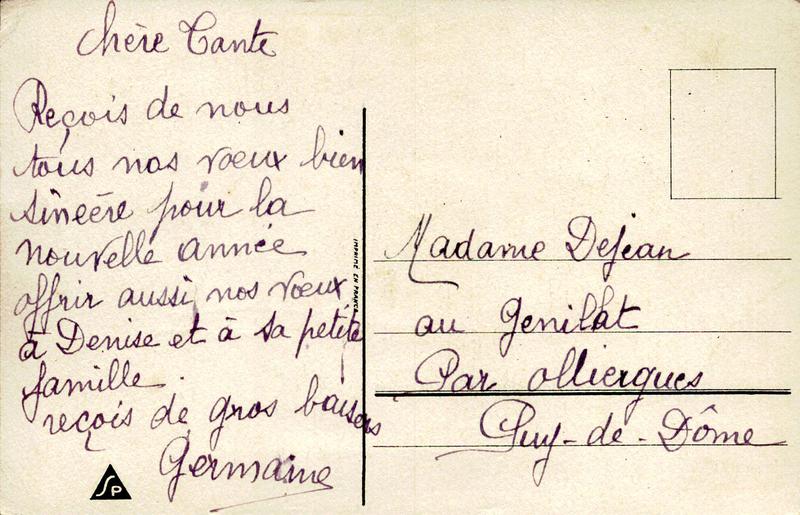 chère Tante
Reçois de nous
tous nos vœux bien
sincère pour la
nouvelle année
offrir aussi nos vœux
à Denise et à sa petite
famille.
reçois de gros baisers
Germaine
SP
IMPRIMÉ EN FRANCE
Madame Dejean
au Genillat
Par Olliergues
Puy-de-Dôme